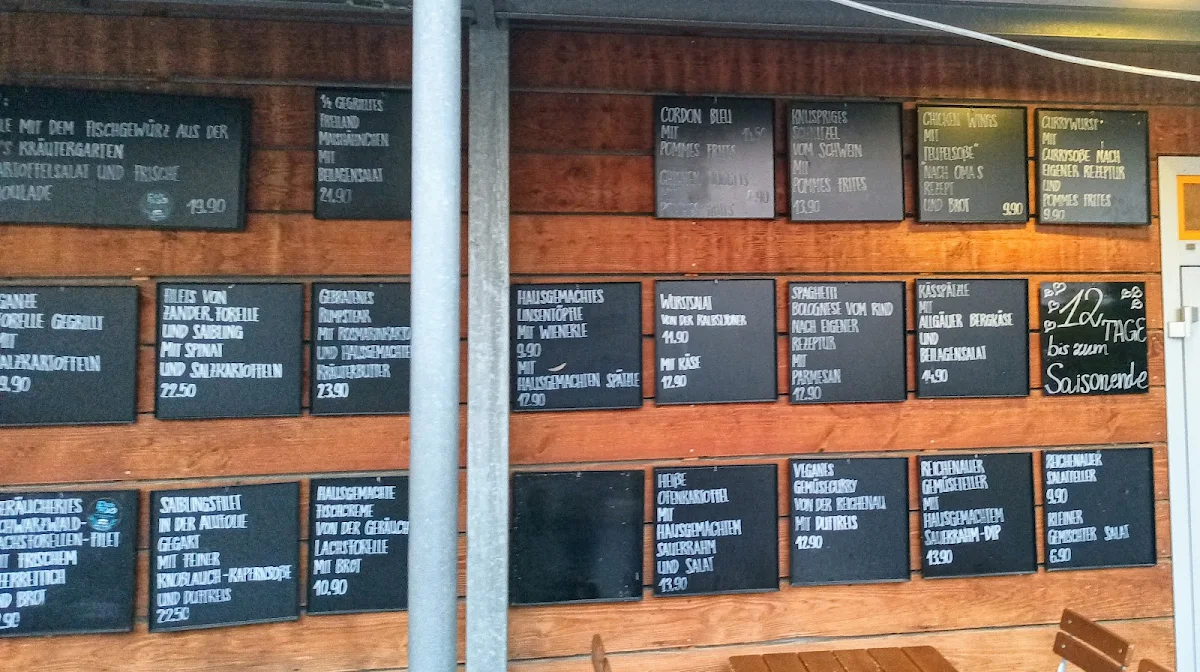 LE MIT DEM FISCHGEWÜRZ AUS DER
'S KRÄUTERGARTEN
ARTOFFELSALAT UND FRISCHE
OULADE
19.90
½ GEGRILLTES
FREILAND
MAISHÄHNCHEN
MIT
BEILAGENSALAT
21.90
CORDON BLEU
MIT
POMMES FRITES
KNUSPRIGES
SCHNITZEL
VOM SCHWEIN
MIT
POMMES FRITES
13,90
CHICKEN WINGS
MIT
"TEUFELSOßE"
"NACH OMA'S
REZEPT
UND BROT 9,90
CURRYWURST
MIT
CURRYSOßE NACH
EIGENER REZEPTUR
UND
POMMES FRITES
9.90
GANZE
ORELLE GEGRILLT
MIT
ALZKARTOFFELN
9.90
FILETS VON
ZANDER, FORELLE
UND SAIBLING
MIT SPINAT
UND SALZKARTOFFELN
22.50
GEBRATENES
RUMPSTEAK
MIT ROSMARINKARTO
UND HAUSGEMACHTE
KRÄUTERBUTTER
23.90
HAUSGEMACHTES
LINSENTÖPFLE
MIT WIENERLE
9.90
MIT
HAUSGEMACHTEN SPÄTZLE
12.90
WURSTSALAT
VON DER KALBSLYONER
11.90
MIT KÄSE
12.90
SPAGHETTI
BOLOGNESE VOM RIND
NACH EIGENER
REZEPTUR
MIT
PARMESAN
12.90
KÄSSPÄTZLE
MIT
ALLGÄUER BERGKÄSE
UND
BEILAGENSALAT
14.90
12 TAGE
bis zum
Saisonende
GERÄUCHERTES
SCHWARZWALD-
LACHSFORELLEN-FILET
MIT FRISCHEM
MEERRETTICH
UND BROT
.90
SAIBLINGSFILET
IN DER ALUFOLIE
GEGART
MIT FEINER
KNOBLAUCH-KAPERNSOßE
UND DUFTREIS
22.50
HAUSGEMACHTE
FISCHCREME
VON DER GERÄUCH
LACHSFORELLE
MIT BROT
10.90
HEIßE
OFENKARTOFFEL
MIT
HAUSGEMACHTEM
SAUERRAHM
UND SALAT
13.90
VEGANES
GEMÜSECURRY
VON DER REICHENAU
MIT DUFTREIS
12.90
REICHENAUER
GEMÜSETELLER
MIT
HAUSGEMACHTEM
SAUERRAHM-DIP
13.90
REICHENAUER
SALATTELLER
9.90
KLEINER
GEMISCHTER SALAT
6.90